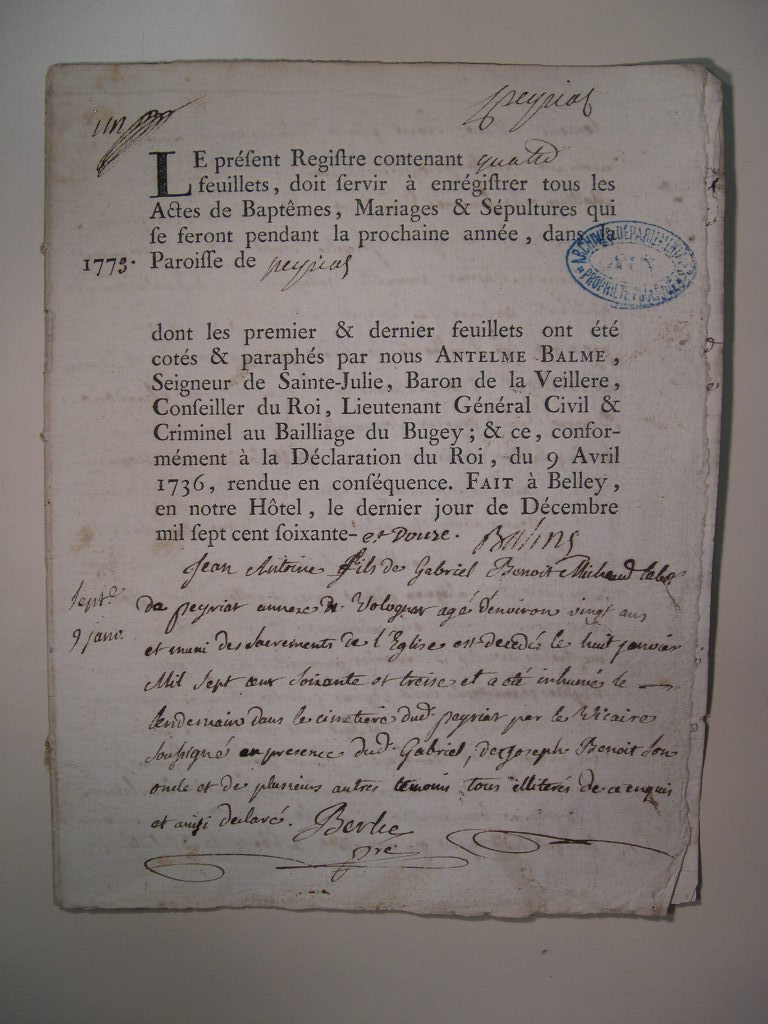 un
peyriat
LE préſent Regiſtre contenant quatre
feuillets, doit ſervir à enrégiſtrer tous les
Actes de Baptêmes, Mariages & Sépultures qui
ſe feront pendant la prochaine année, dans la
1773. Paroiſſe de peyriat
ARCHIVES DÉPARTEMENTALES
AIN
PROPRIÉTÉ PUBLIQUE
dont les premier & dernier feuillets ont été
cotés & paraphés par nous ANTELME BALME,
Seigneur de Sainte-Julie, Baron de la Veillere,
Conſeiller du Roi, Lieutenant Général Civil &
Criminel au Bailliage du Bugey; & ce, confor-
mément à la Déclaration du Roi, du 9 Avril
1736, rendue en conſéquence. FAIT à Belley,
en notre Hôtel, le dernier jour de Décembre
mil ſept cent ſoixante- et Douze.
Jean Antoine fils de Gabriel Benoit Michaud labor
Sept.e
9 janv.
de peyriat annexe de Volognat agé denviron vingt ans
et muni des Sacrements de l'Eglise est decedé le huit janvier
Mil Sept cent Soixante et treise et a eté inhumé le
lendemain dans le cimetiere dud. peyriat par le Vicaire
soussigné en presence dud. Gabriel, de joseph Benoit son
oncle et de plusieurs autres temoins tous illiterés de ce enquis
et ainsi declaré. Berlie
pre